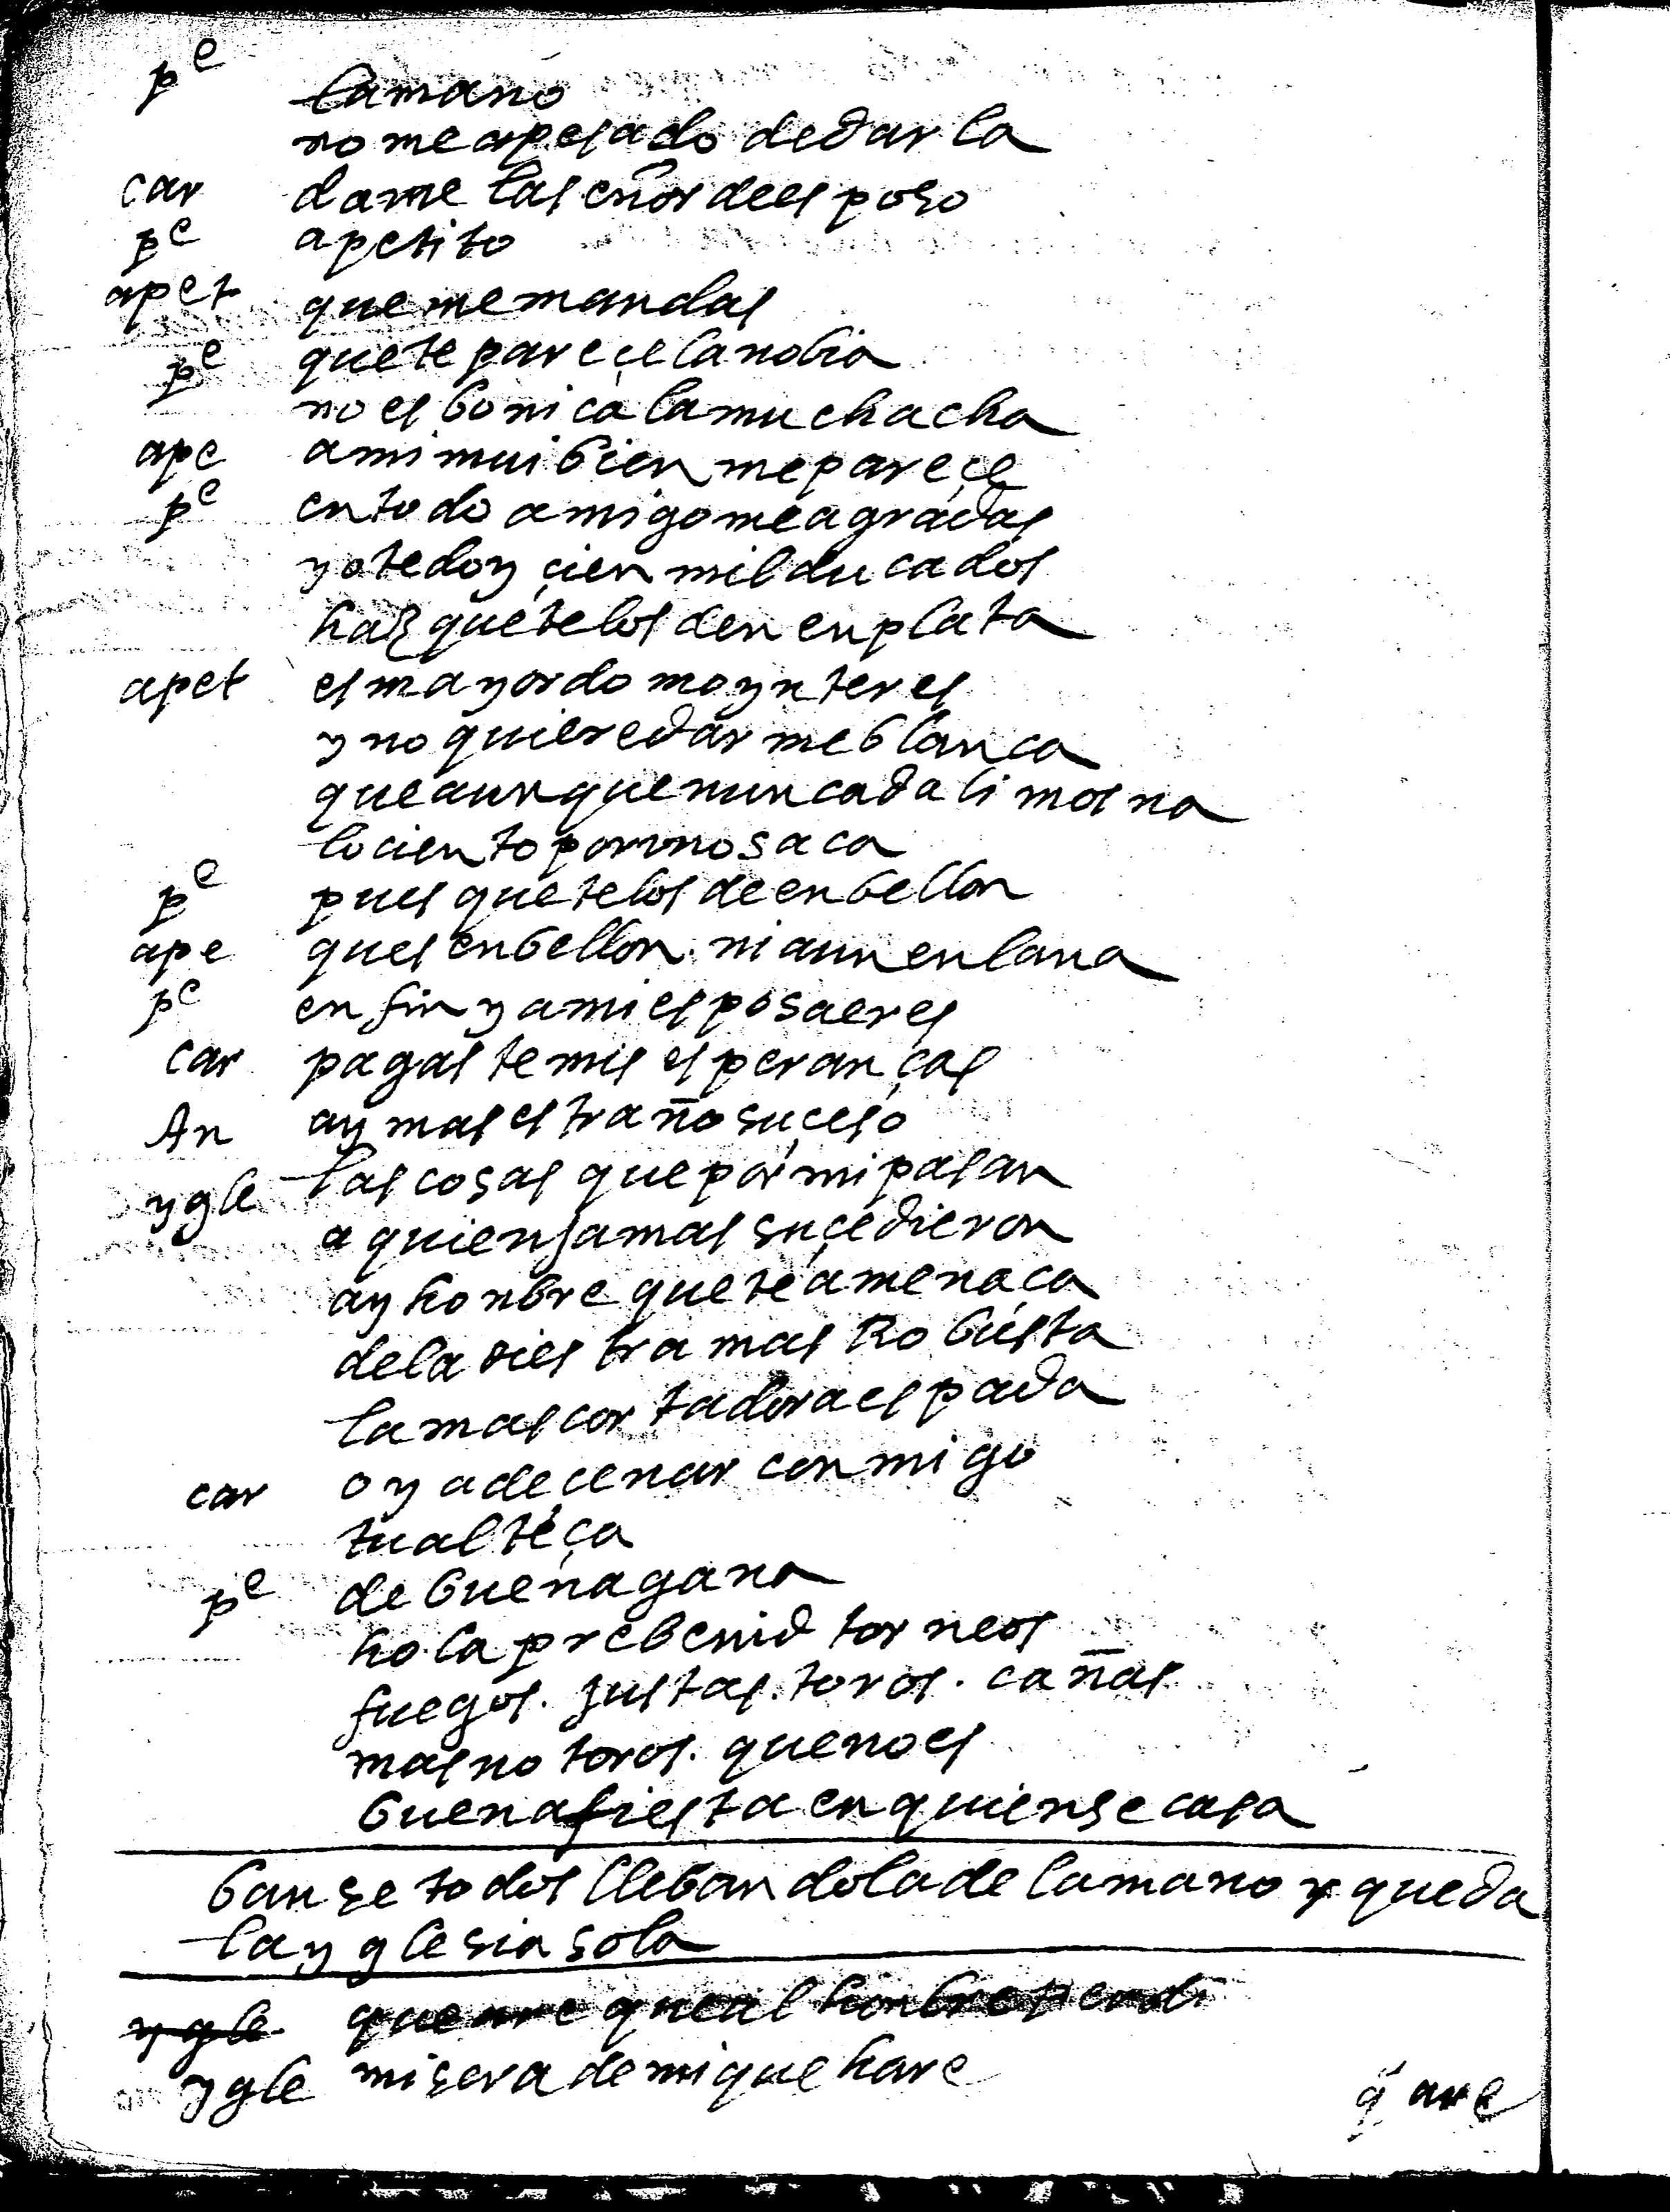 pe la mano
no me a pesado de darla
car dame la señor de esposo
pe apetito
apet que me mandas
pe que te pareçe la nobia
no es bonica la muchacha
ape a mi mui bien me pareçe
pe en todo amigo me agradas
yo te doy çien mil ducados
haz que te los den en plata
apet es mayordomo ynteres
y no quiere darme blanca
que aunque nunca da limosna
lo ciento por uno saca
pe pues que te los de en bellon
ape ques en bellon. ni aun en lana
pe en fin ya mi esposa eres
car pagaste mis esperanças
An ay mas estraño suçeso
ygle las cosas que por mi pasan
a quien jamas suçedieron
ay honbre que te amenaça
de la diestra mas Robusta
la mas cortadora espada
car oy a de çenar conmigo
tu alteça
pe de buena gana
hola prebenid torneos
fuegos. justas. toros. cañas
mas no toros. que no es
buena fiesta en quien se casa
banse todos llebandola de la mano y queda
la yglesia sola
ygle que are que al honbre perdi
ygle misera de mi que hare
q are